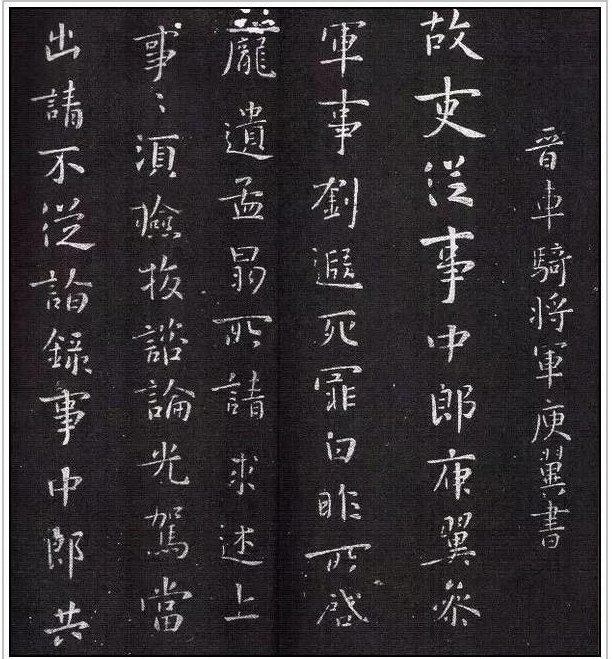 晉車騎将軍庾翼書
故吏從事中郎庾翼參
軍事劉遐死罪白昨所啓
龐遺孟昺所請求述上
事〻湏撿挍諮論光駕當
出請不從詣錄事中郎共